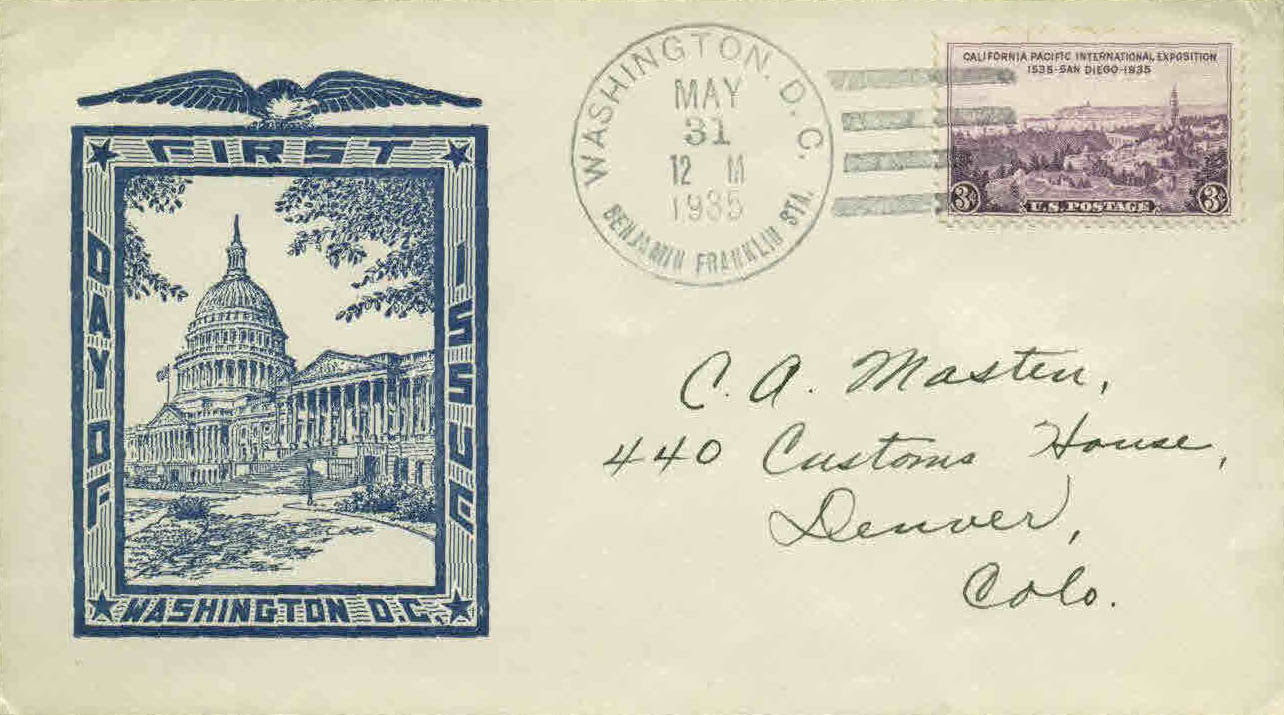 FIRST
DAY OF
ISSUE
WASHINGTON D.C.
WASHINGTON, D. C.
MAY
31
12 M
1935
BENJAMIN FRANKLIN STA.
CALIFORNIA PACIFIC INTERNATIONAL EXPOSITION
1535-SAN DIEGO-1935
3¢ U.S. POSTAGE 3¢
C. A. Masten,
440 Customs House,
Denver,
Colo.